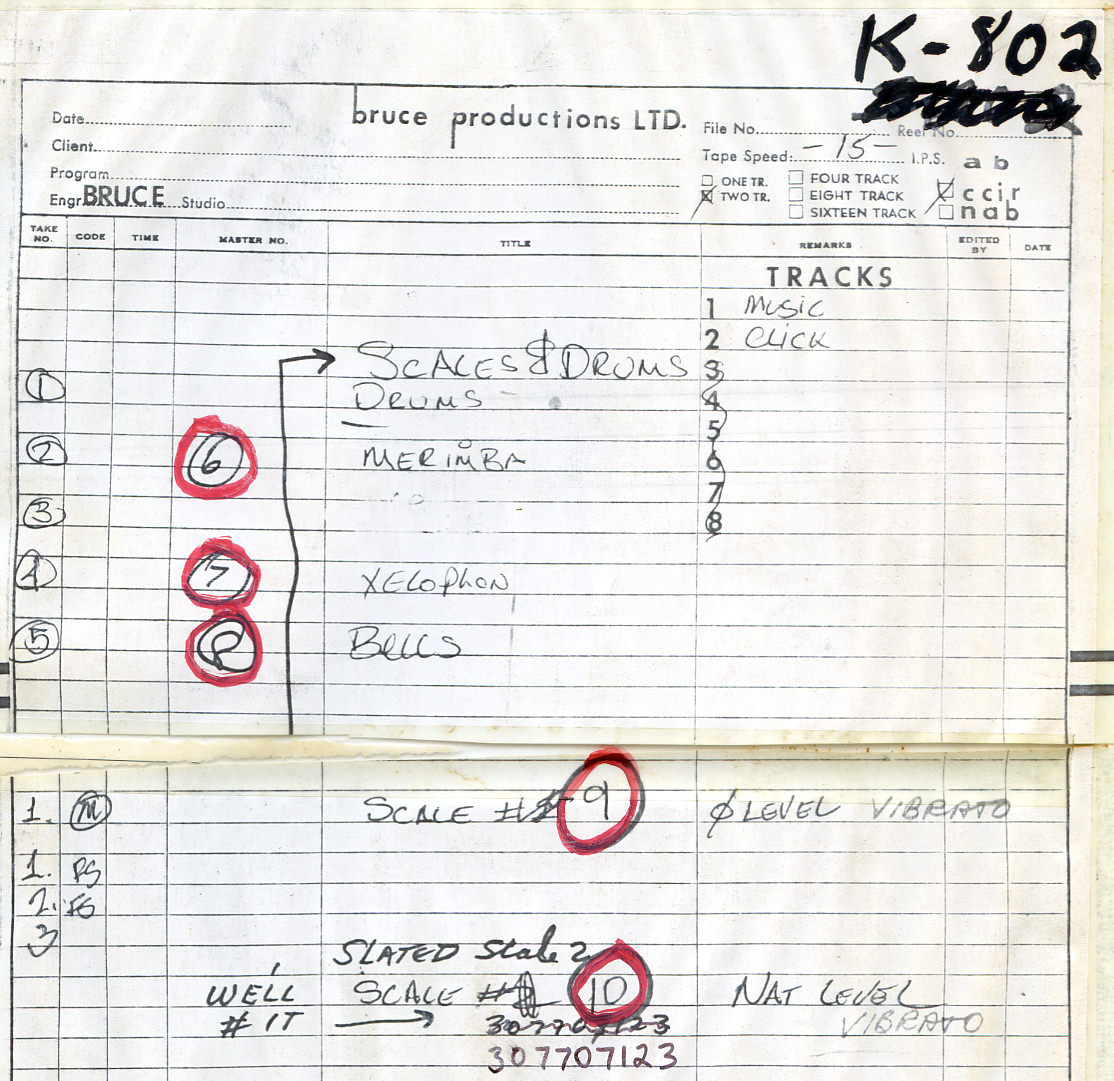 K-802
bruce productions LTD.
Date
File No. Reel No.
Client
Tape Speed: -15- I.P.S. a b
Program
ONE TR. FOUR TRACK
TWO TR. EIGHT TRACK ccir
Engr BRUCE Studio
SIXTEEN TRACK nab
TAKE NO. CODE TIME MASTER NO. TITLE REMARKS EDITED BY DATE
TRACKS
1 MUSIC
2 CLICK
SCALES & DRUMS 3
1 DRUMS 4
5
2 6 MERIMBA 6
7
3 8
4 7 XELOPHON
5 8 BELLS
1. M SCALE # 9 Ø LEVEL VIBRATO
1. PS
2. FS
3
SLATED Scale 2
WELL SCALE # 10 NAT LEVEL
# IT 307707123 VIBRATO
307707123